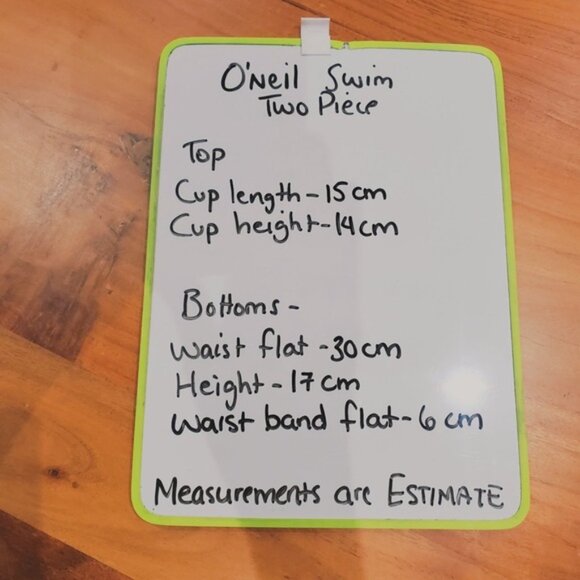 O'Neil Swim
Two Piece
Top
Cup length - 15 cm
Cup height - 14 cm
Bottoms -
Waist flat - 30 cm
Height - 17 cm
Waist band flat - 6 cm
Measurements are ESTIMATE